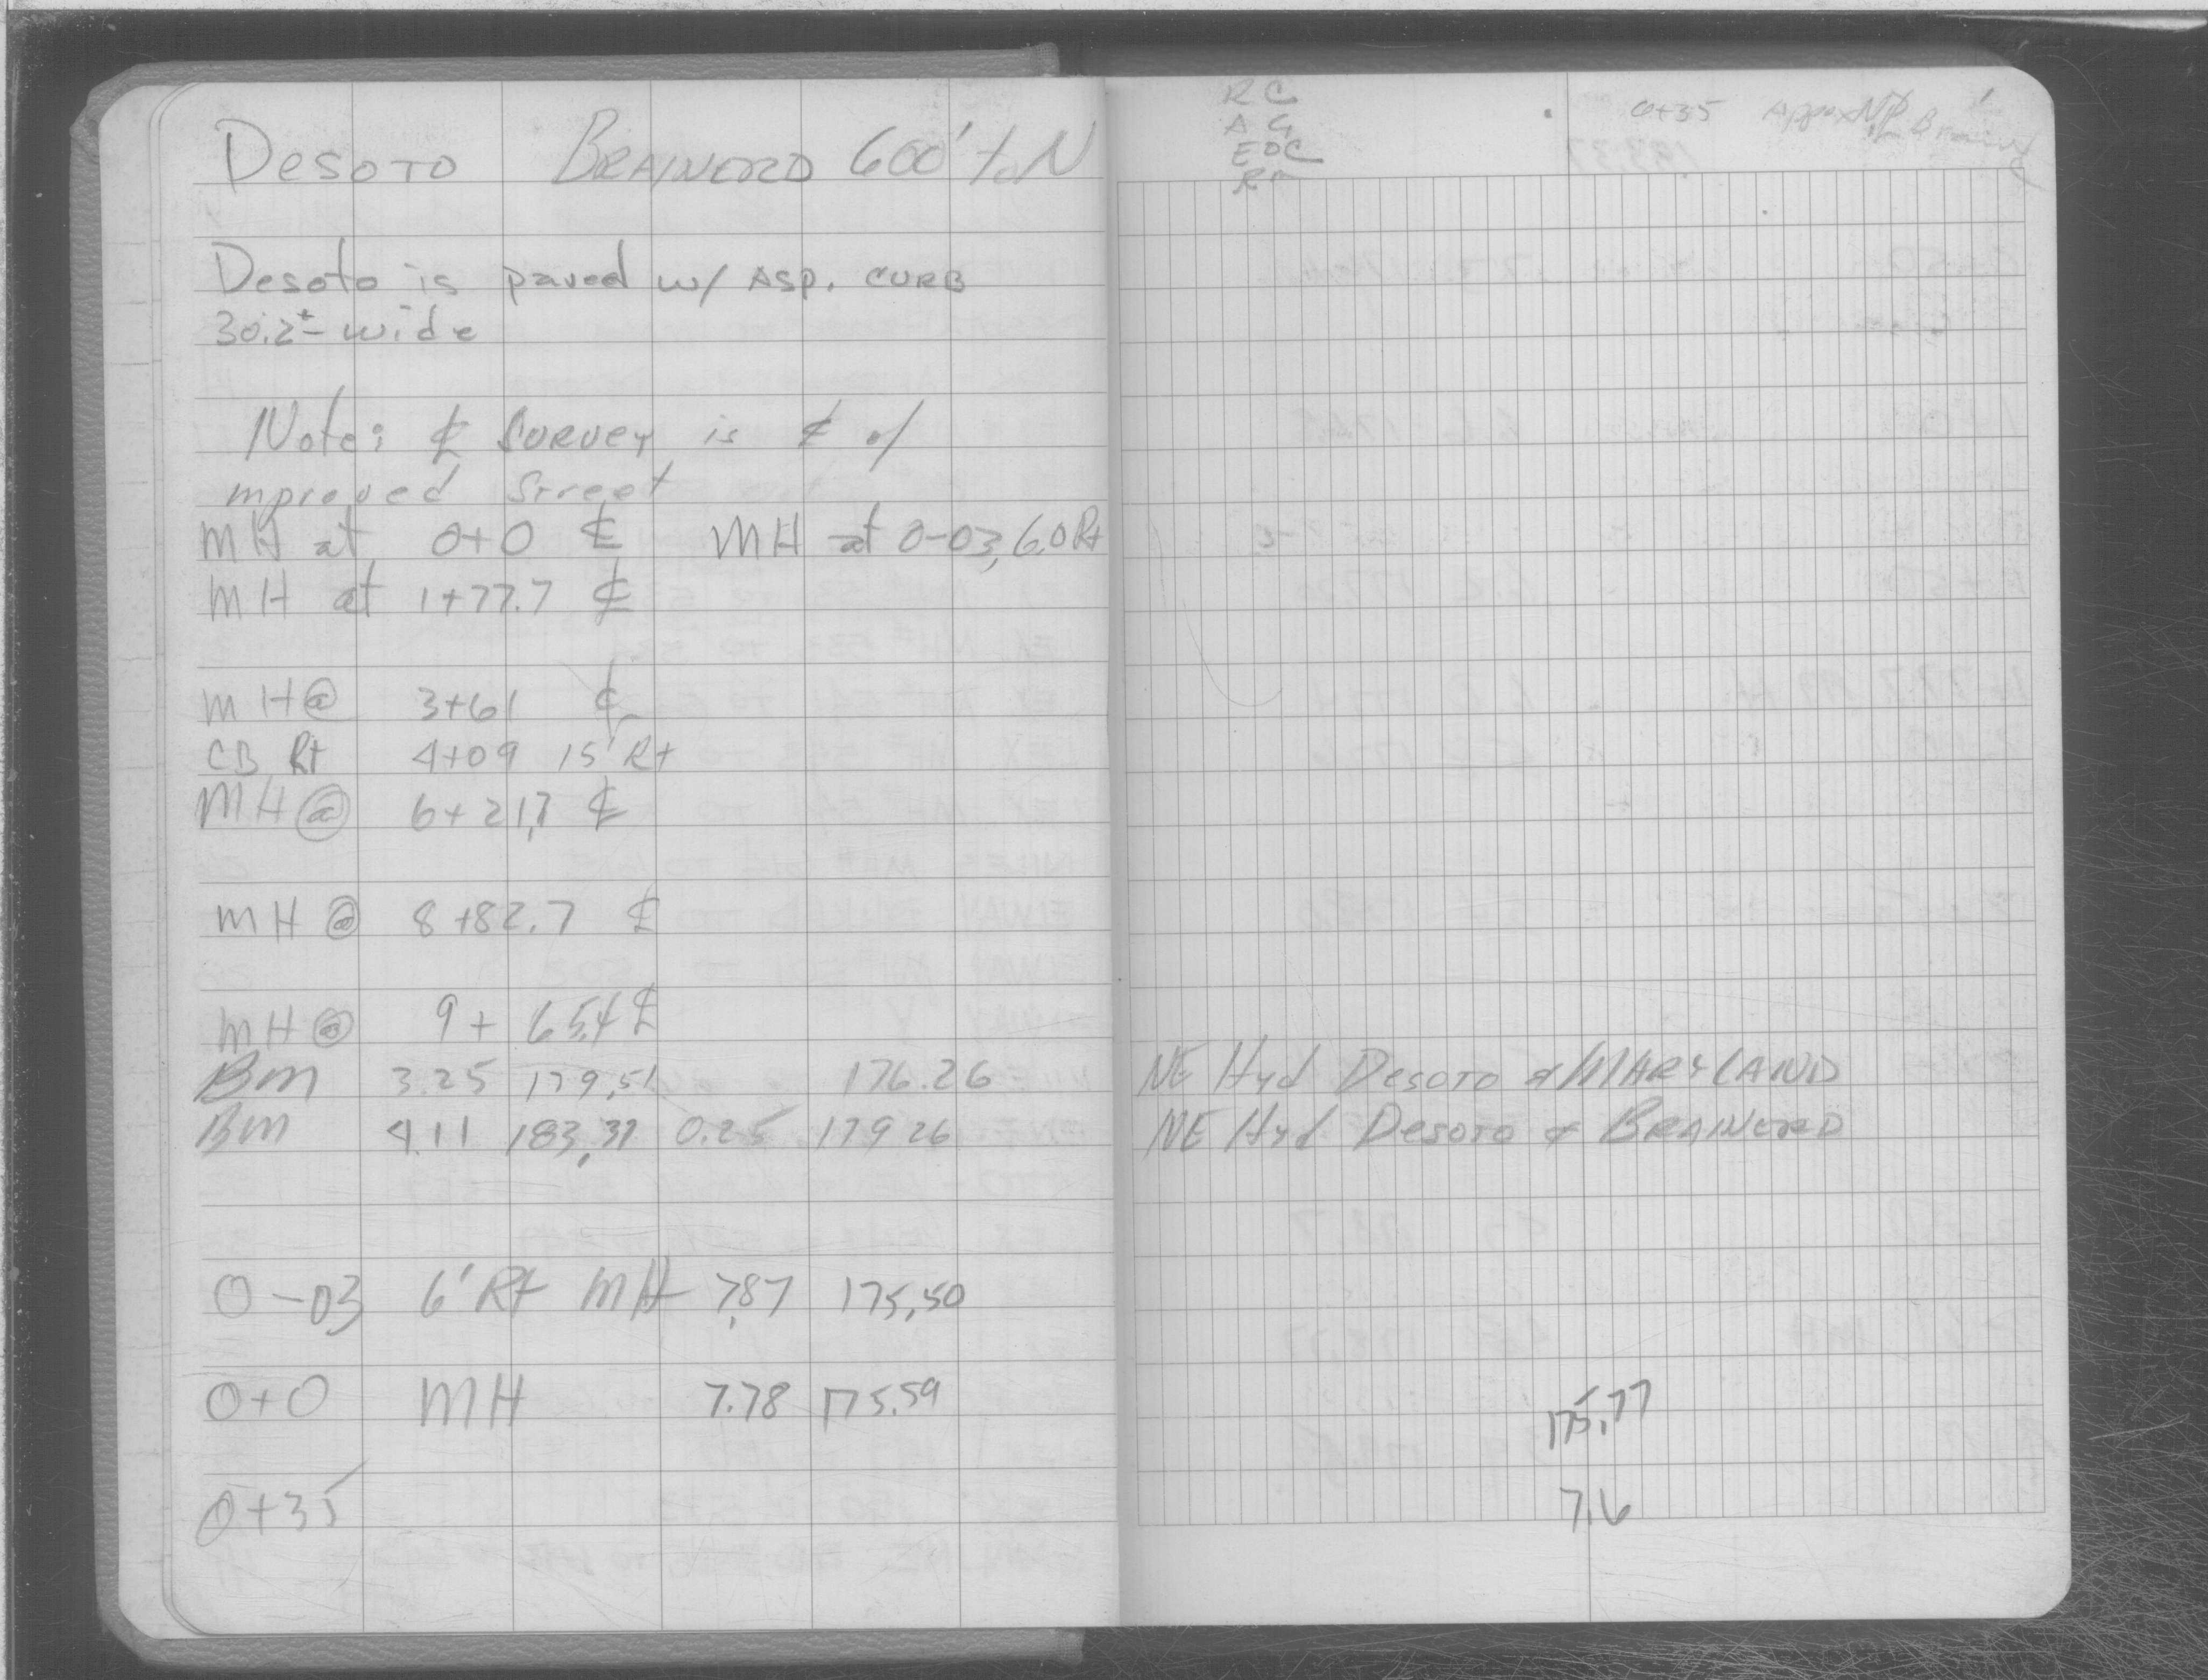 Desoto Brainerd 600' to N
Desoto is paved w/ Asp. curb
30.2± wide
Note: ℄ Survey is ℄ of
mproved Street
MH at 0+0 ℄ MH at 0-03, 6.0 Rt
MH at 1+77.7 ℄
MH@ 3+61 ℄
CB Rt 4+09 15' Rt
MH@ 6+21.7 ℄
MH@ 8+82.7 ℄
MH@ 9+65.4 ℄
BM 3.25 179.51 176.26
BM 4.11 183.37 0.25 179 26
0-03 6' Rt MH 7.87 175.50
0+0 MH 7.78 175.59
0+35
RC
AG
EOC
0+35 Appox N
NE Hyd Desoto & Maryland
NE Hyd Desoto & Brainerd
175.77
7.6